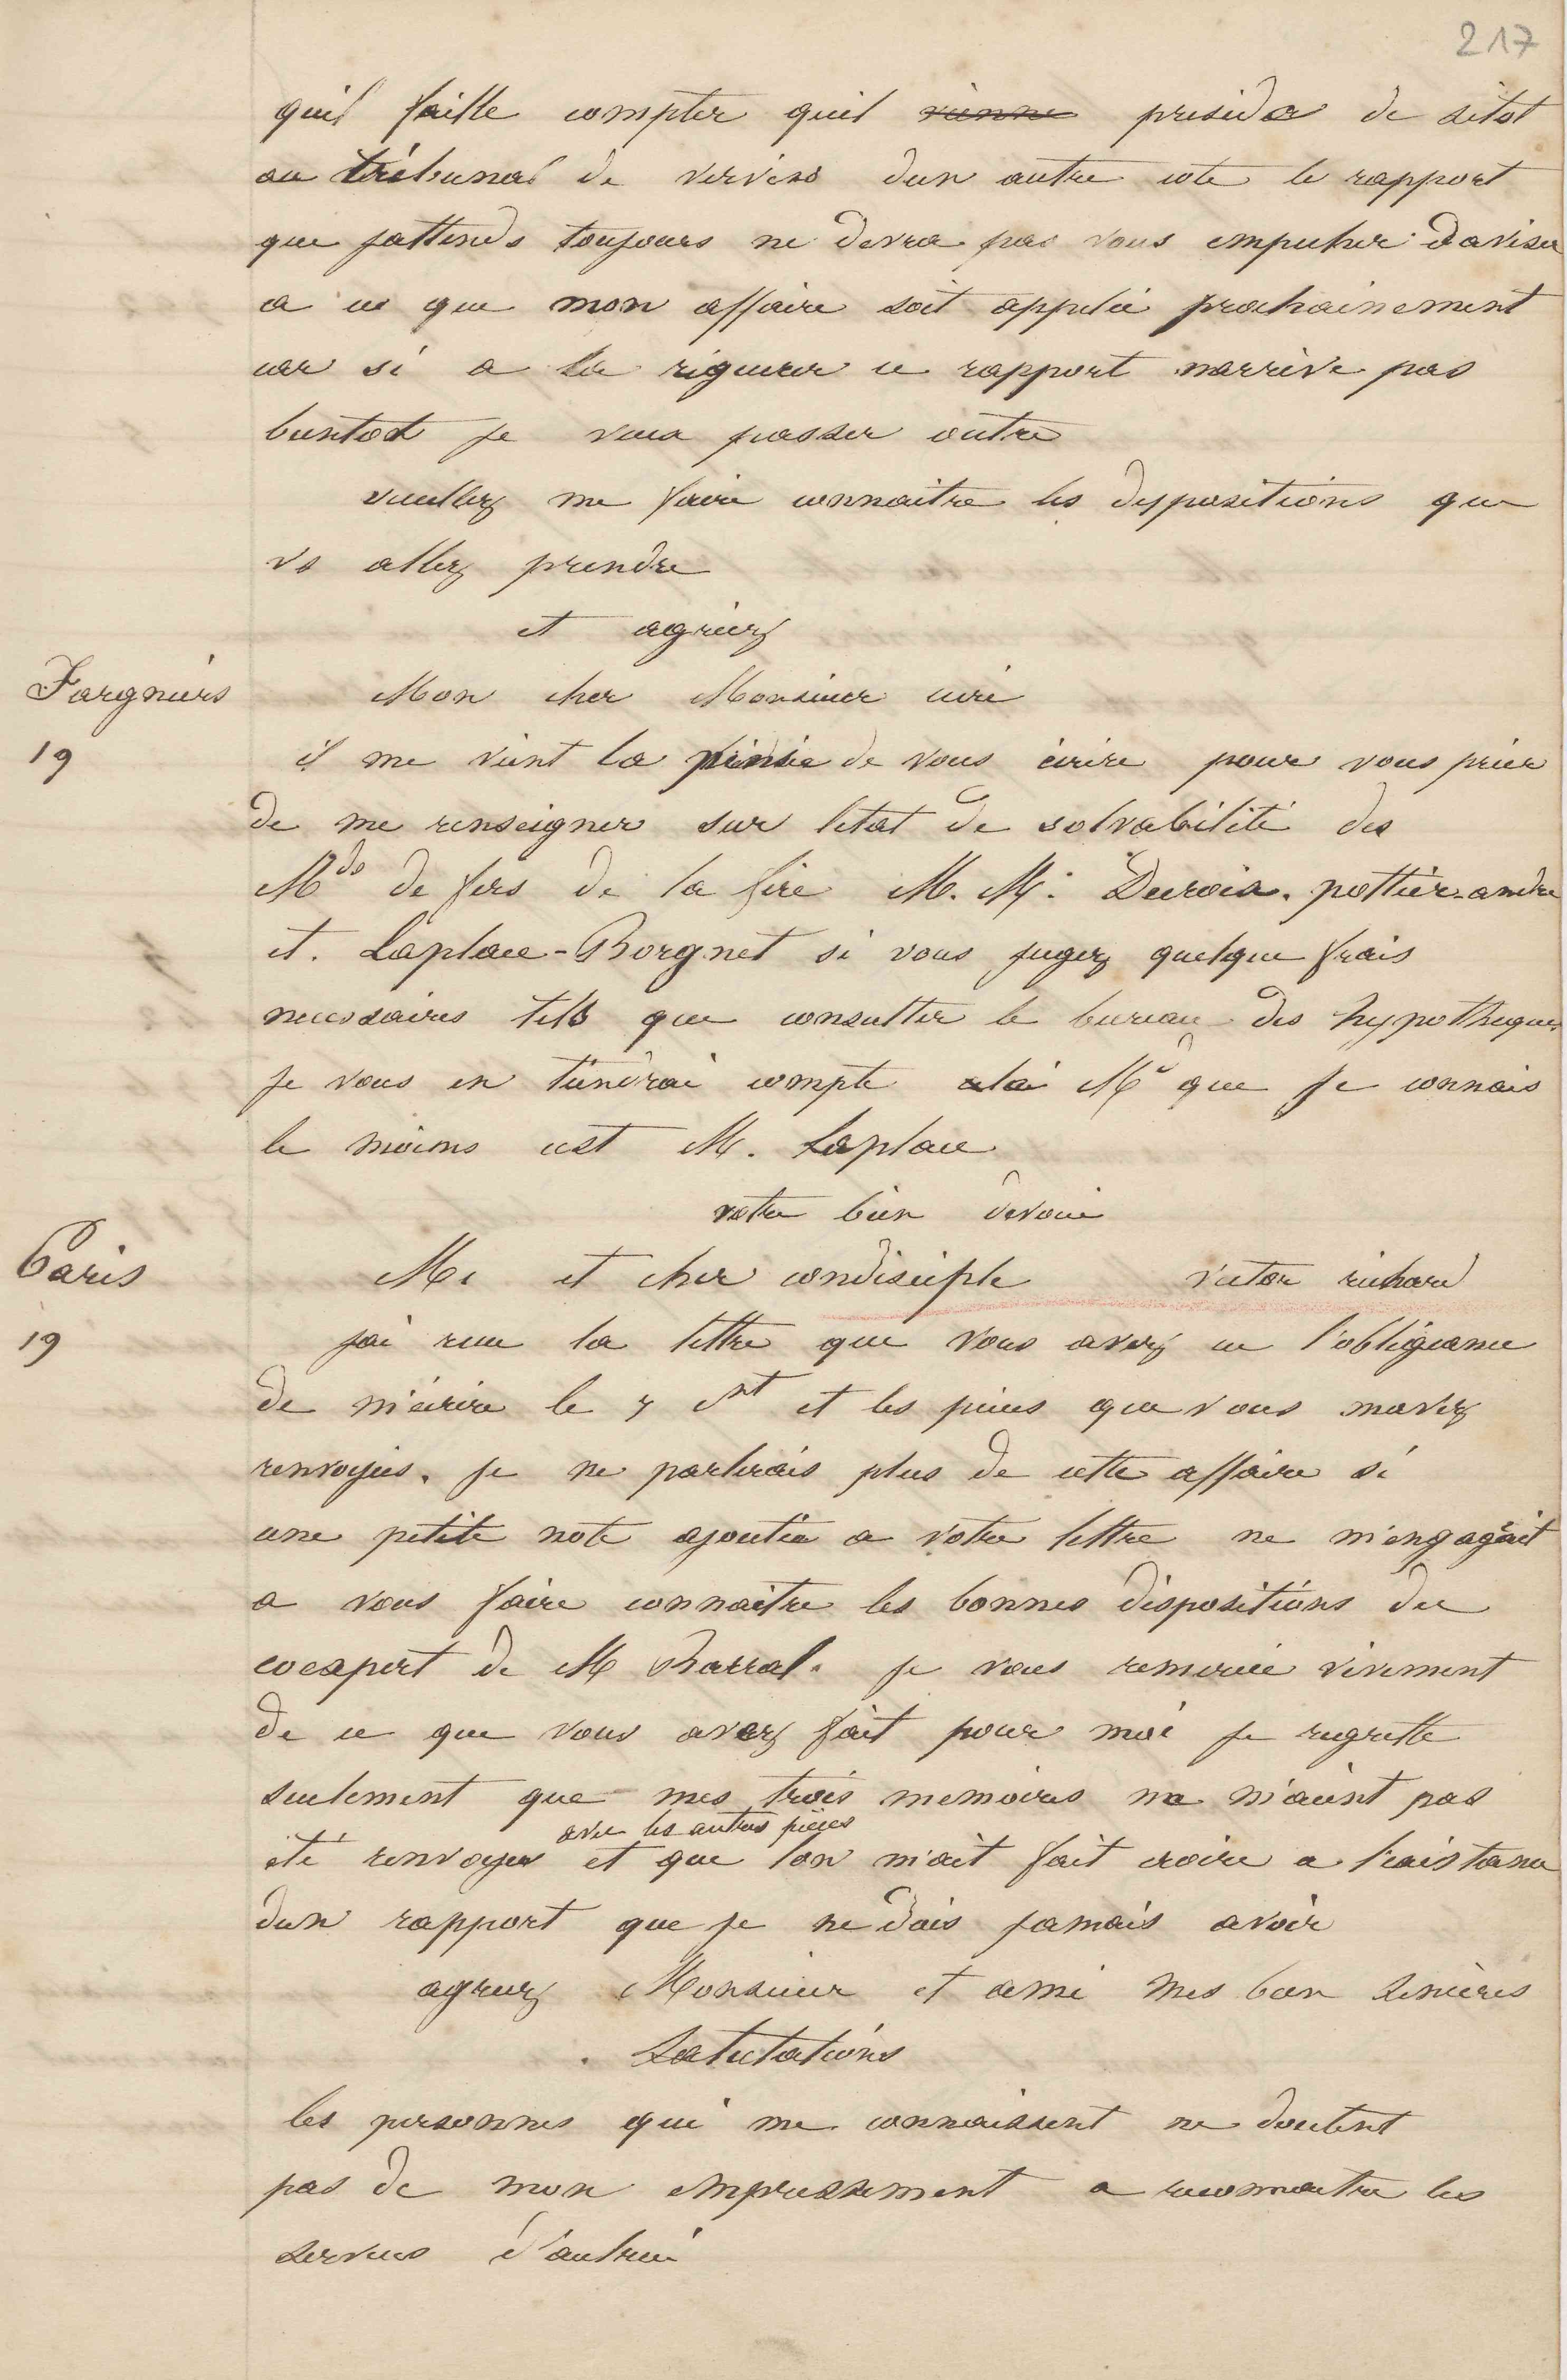 217
quil faille compter quil vienne presider de sitot
au tribunal de vervins dun autre cote le rapport
que jattends toujours ne devra pas vous empecher daviser
a ce que mon affaire soit appelée prochainement
car si a la rigueur ce rapport narrive pas
bientot je veux passer outre
veuillez me faire connaitre les dispositions que
vs allez prendre
et agréez
Fargniers Mon cher Monsieur curé
19 il me vient la pensée de vous écrire pour vous prier
de me renseigner sur letat de solvabilité des
Mds de fers de la fère M. M. Duroia. pottier-andre
et. Laplace-Borgnet si vous jugez quelque frais
necessaires tels que consulter le bureau des hypotheques
je vous en tiendrai compte Md que je connais
le moins cest M. Laplace
votre bien devoué
Paris Mr et cher condisciple victor richard
19 jai recu la lettre que vous avez eu l'obligeance
de m'écrire le 7 ct et les pieces que vous mavez
renvoyées. je ne parlerais plus de cette affaire si
une petite note ajoutée a votre lettre ne m'engageait
a vous faire connaitre les bonnes dispositions du
coexpert de M Barral. je vous remercie vivement
de ce que vous avez fait pour moi je regrette
seulement que mes trois memoires ne m'aient pas
avec les autres pièces
été renvoyés et que lon m'ait fait croire a l'existance
dun rapport que je ne dois jamais avoir
agreez Monsieur et ami mes bien sincères
Salutations
les personnes qui me connaissent ne doutent
pas de mon empressement a reconnaitre les
services d'autrui